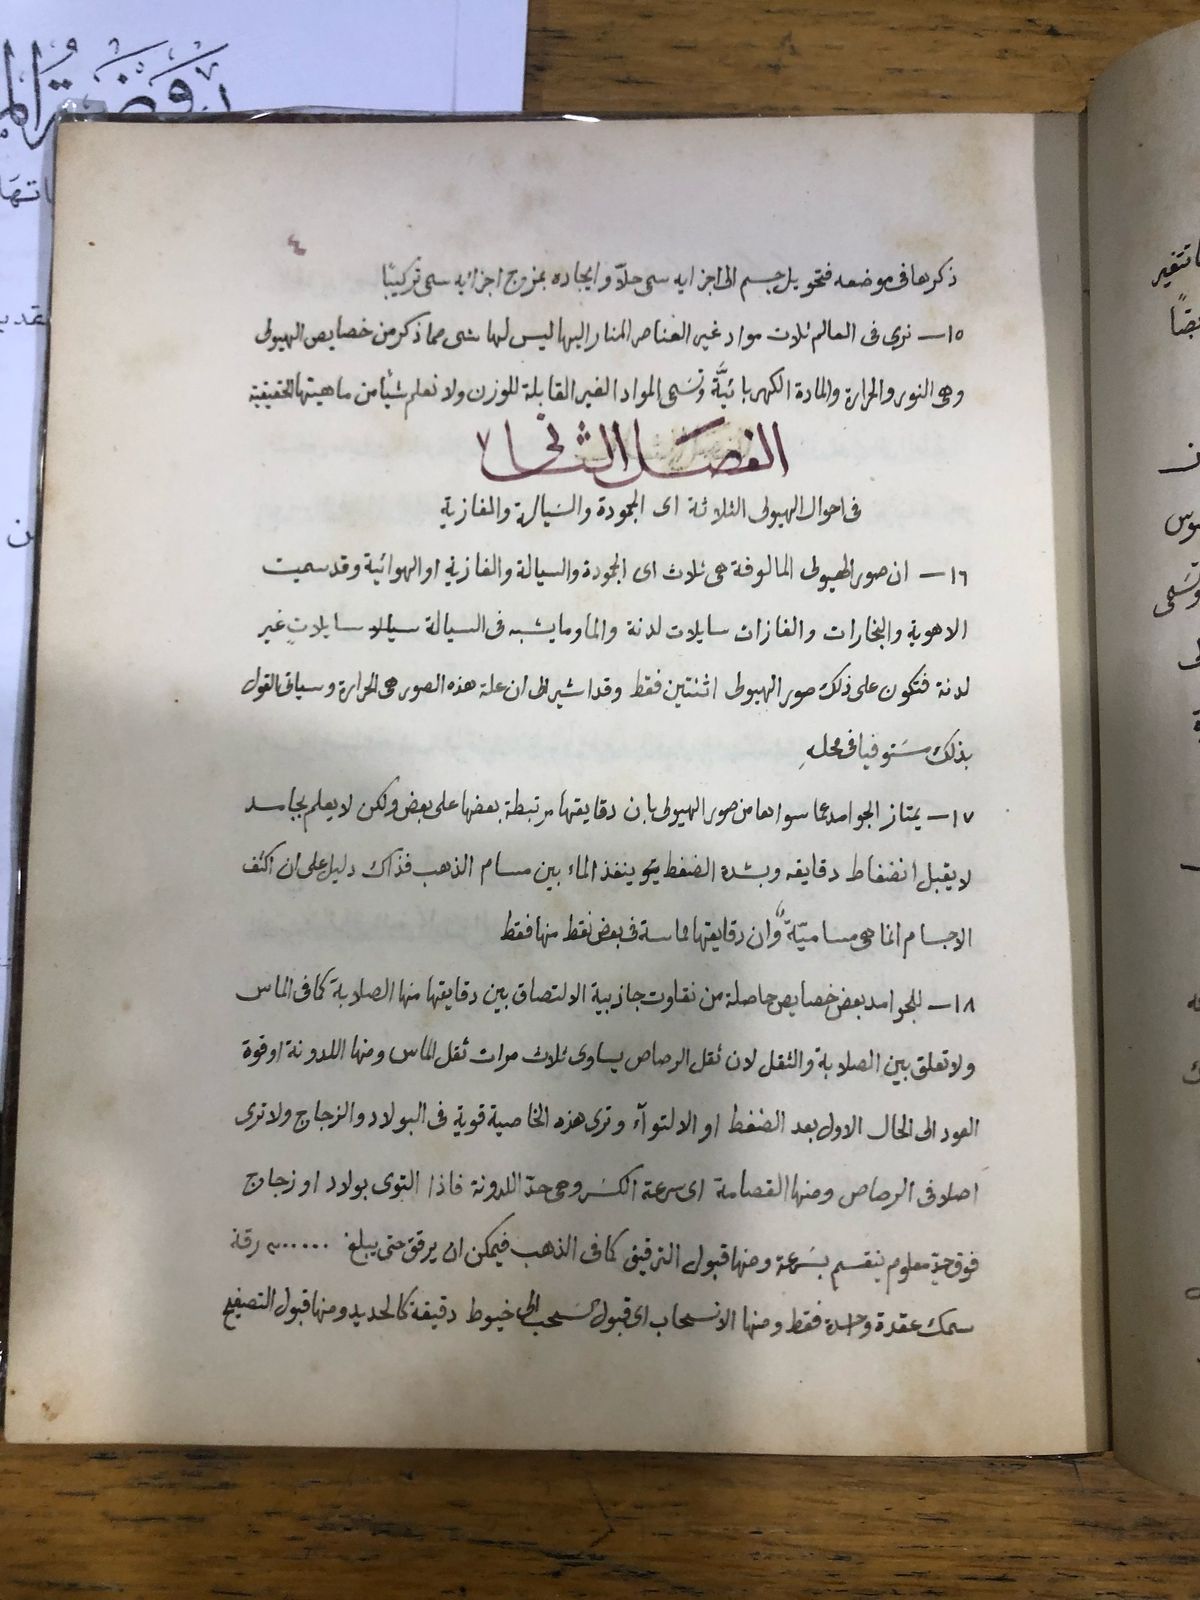 ٤
ذكرها فى موضعه فتحويل جسم الى اجزايه سمى حلاّ وايجاده بمزج اجزايه سمى تركيبًا
١٥— نرى فى العالم ثلاث مواد غير العناصر المشار اليها ليس لها شى مما ذكر من خصايص الهيولى
وهى النور والحرارة والمادة الكهربائيَّة وتسَمى المواد الغير القابلة للوزن ولا نعلم شيًا من ماهيتها الحقيقية
الفصل الثانى
فى احوال الهيولى الثلاثة اى الجمودة والسَيالة والغازية
١٦— ان صور الهيولى المالوفة هى ثلاث اى الجمودة والسيالة والغازية او الهوائية وقد سميت
الاهوية والبخارات والغازات سايلات لدنة والما وما يشبه فى السيالة سيالا سايلاتٍ غير
لدنة فتكون على ذلك صور الهيولى اثنتين فقط وقد اشير الى ان علة هذه الصور هى الحرارة وسياتى القول
بذلك مسَتوفيا فى محلهِ
١٧— يمتاز الجوامد عما سواها من صور الهيولى بان دقايقها مرتبطة بعضها على بعض ولكن لا يعلم بجامد
لا يقبل انضغاط دقايقه وبشدة الضغط ينفذ الماء بين مسام الذهب فذاك دليل على ان اكثف
الاجسام انما هى مساميّة وان دقايقها مماسة فى بعض نقط منها فقط
١٨— للجوامد بعض خصايص حاصلة من تفاوت جاذبية الالتصاق بين دقايقها منها الصلابة كما فى الماس
ولا تعلق بين الصلابة والثقل لان ثقل الرصاص يساوى ثلاث مرات ثقل الماس ومنها اللدونة او قوة
العود الى الحال الاول بعد الضغط او الالتوآء وترى هذه الخاصية قوية فى البولاد والزجاج ولا ترى
اصلا فى الرصاص ومنها القصامة اى سرعة الكسَر وهى حدّ اللدونة فاذا التوى بولاد او زجاج
فوق حدٍ معلوم ينقسم بسَرعة ومنها قبول الترقيق كما فى الذهب فيمكن ان يرقق حتى يبلغ ٣٠٠٠٠٠ رقة
سمك عقدة وحدة فقط ومنها الانسحاب اى قبول السَحب الى خيوط دقيقة كالحديد ومنها قبول التصفيح